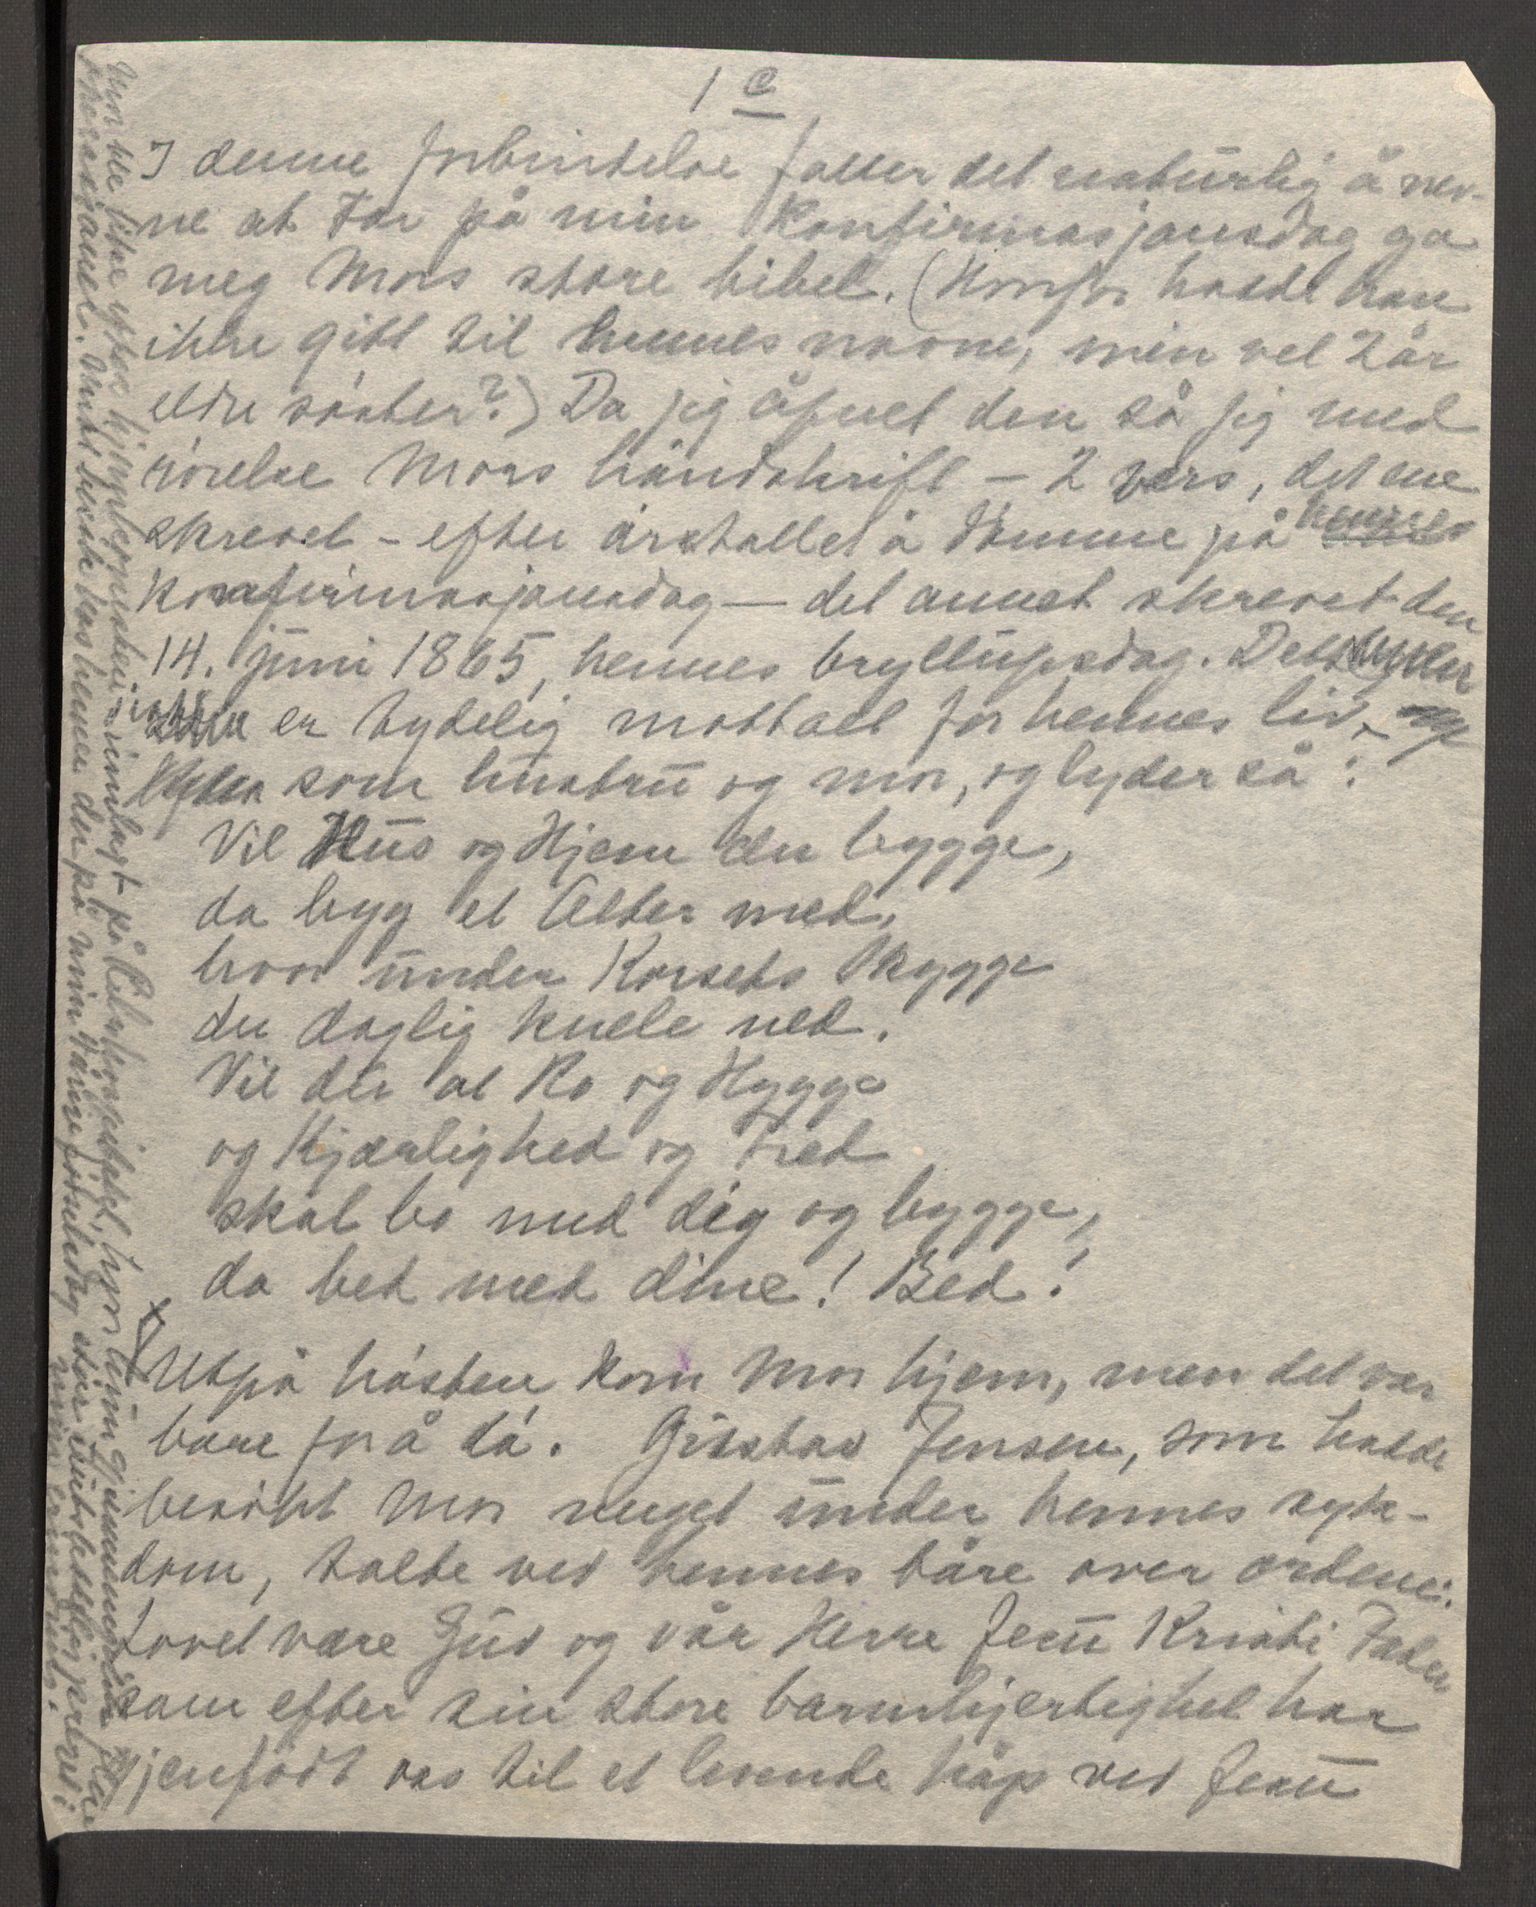 1 c
I denne forbindelse faller det naturlig å nev-
ne at Far på min Konfirmasjonsdag ga
meg Mors store bibel. (Hvorfor hadde han
ikke gitt til hennes navne, min vel 2 år
eldre søster?) Da jeg åpnet den så jeg med
rørelse Mors håndskrift – 2 vers, det ene
skrevet – efter årstallet å dømme på hennes
Konfirmasjonsdag — det annet skrevet den
14. juni 1865, hennes bryllupsdag. Dette
siste er tydelig mottoet for hennes liv
som hustru og mor, og lyder så:
Vil Hus og Hjem du bygge,
da byg et Alter med,
hvor under Korsets Skygge
du daglig knele ned.
Vil du at Ro og Hygge
og Kjærlighed og Fred
skal bo med dig og bygge,
da bed med dine! Bed!
Utpå høsten kom Mor hjem, men det var
bare for å dø. Gustav Jensen, som hadde
besøkt Mor meget under hennes syk-
dom, talte ved hennes båre over ordene:
Lovet være Gud og vår Herre Jesu Kristi Fader
som efter sin store barmhjertighet har
gjenfødt oss til et levende håp ved Jesu
Hun ble litt efter innlagt på hospitalet, hvor hun
hos henne der på min står
min